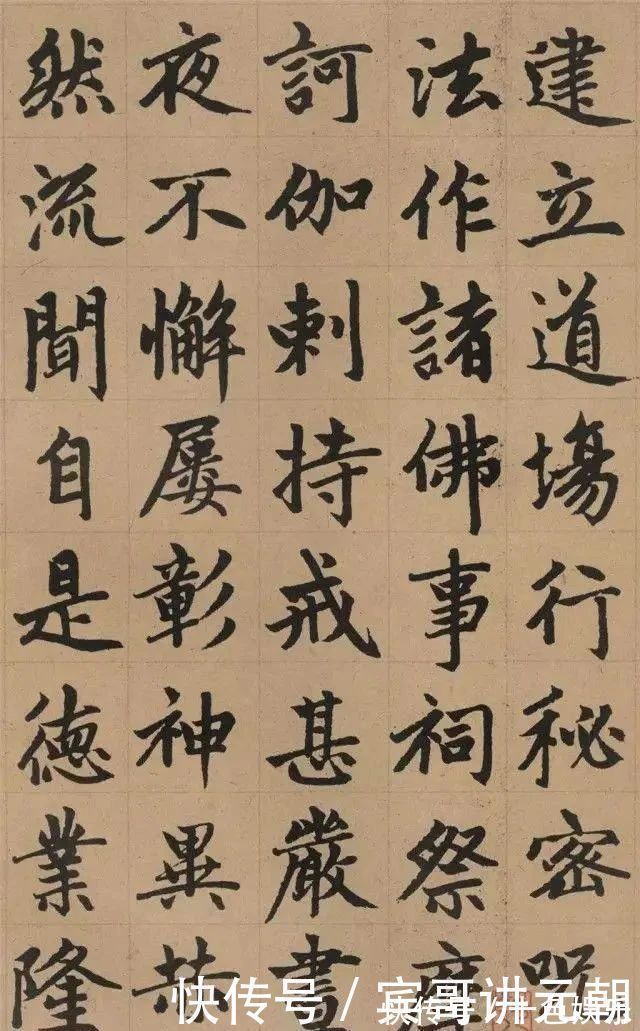 建立道場行秘密呪
法作諸佛事祠祭摩
訶伽剌持戒甚嚴晝
夜不懈屢彰神異赫
然流聞自是德業隆
快传号/宾哥讲元朝